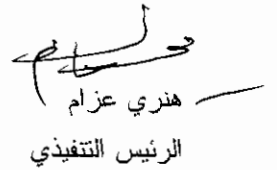 هنري عزام
الرئيس التنفيذي